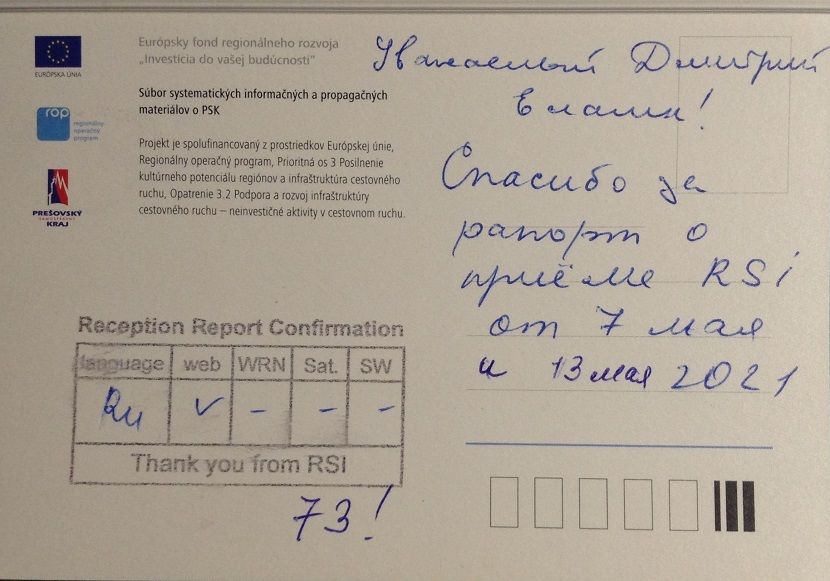 EURÓPSKA ÚNIA
Európsky fond regionálneho rozvoja
„Investícia do vašej budúcnosti"
rop
regionálny
operačný
program
Súbor systematických informačných a propagačných
materiálov o PSK
PREŠOVSKÝ
SAMOSPRÁVNY
KRAJ
Projekt je spolufinancovaný z prostriedkov Európskej únie,
Regionálny operačný program, Prioritná os 3 Posilnenie
kultúrneho potenciálu regiónov a infraštruktúra cestovného
ruchu, Opatrenie 3.2 Podpora a rozvoj infraštruktúry
cestovného ruchu – neinvestičné aktivity v cestovnom ruchu.
Уважаемый Дмитрий
Елагин!
Спасибо за
рапорт о
приёме RSI
от 7 мая
и 13 мая 2021
Reception Report Confirmation
language web WRN Sat. SW
Ru ✓ – – –
Thank you from RSI
73!